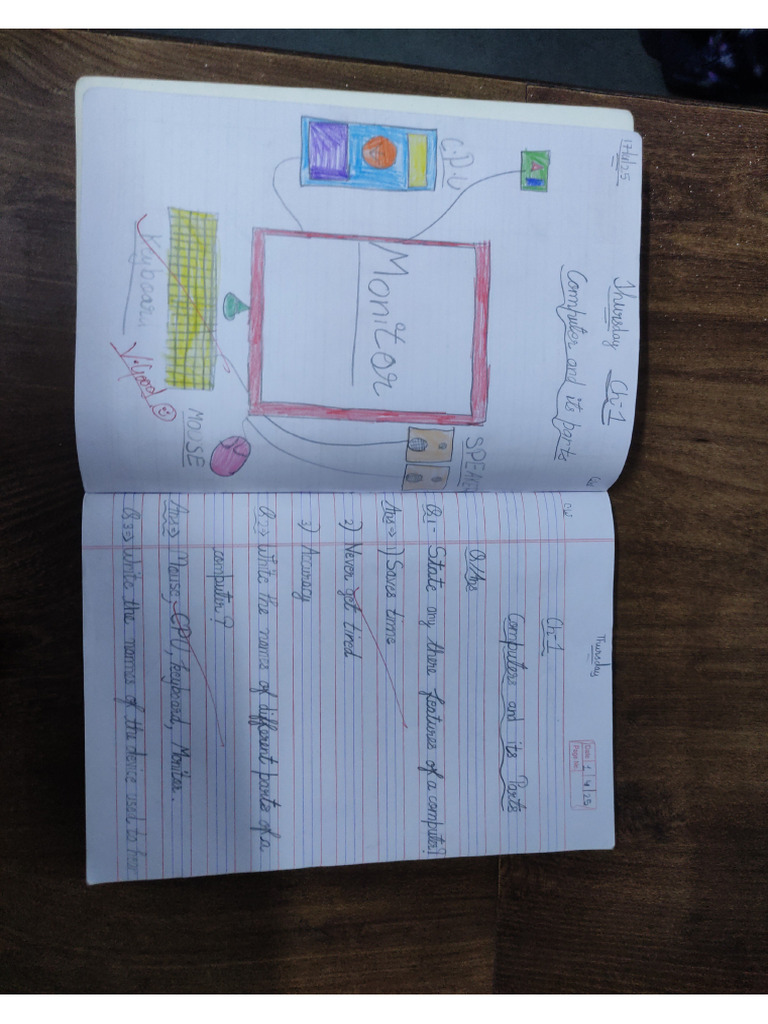 Thursday Ch-1
Computer and its parts
C.P.U
A
Monitor
SPEAKER
MOUSE
Keyboard
V.Good
CW
Thursday
Date 1/4/25
Page No.
Ch-1
Computers and its Parts
Q/Ans
Q1- State any there features of a computer?
Ans⇒ 1) Saves time
2) Never get tired
3) Accuracy
Q2⇒ Write the names of different parts of a
computer?
Ans⇒ Mouse, CPU, keyboard, Monitor.
Q3⇒ Write the names of the device used to hear